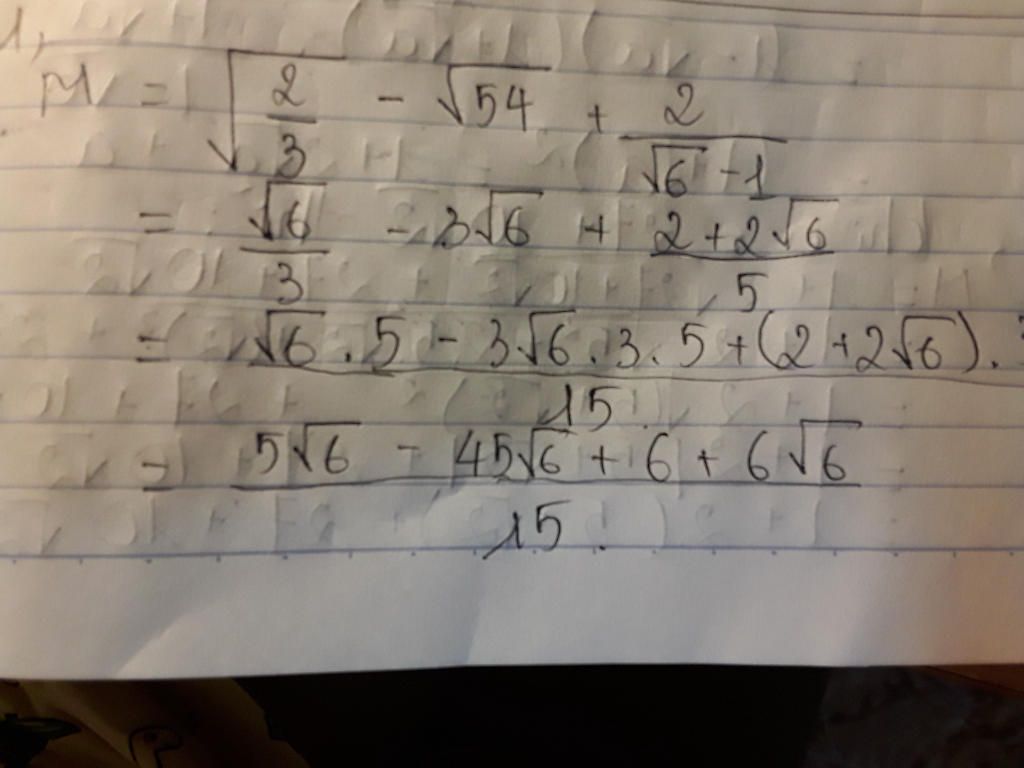 1,
M = √(2/3) - √54 + 2/(√6 - 1)
= √6/3 - 3√6 + (2 + 2√6)/5
= (√6 . 5 - 3√6 . 3 . 5 + (2 + 2√6) . 3)/15
= (5√6 - 45√6 + 6 + 6√6)/15